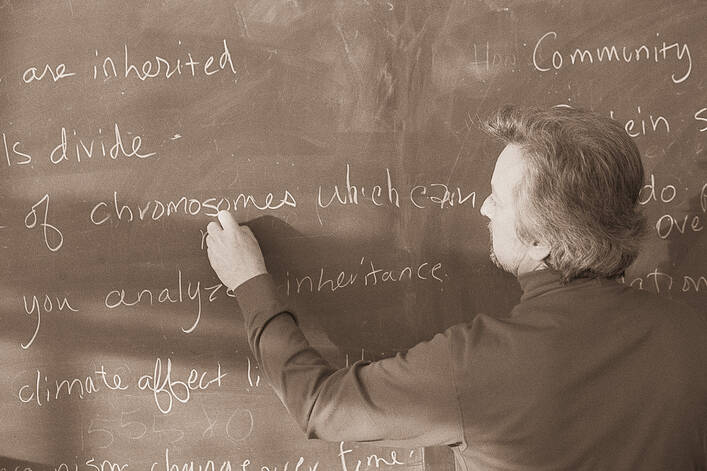 are inherited
ls divide
of chromosomes which can
you analyze inheritance
climate affect li
nism change over time.
Community
ein s
do
ove